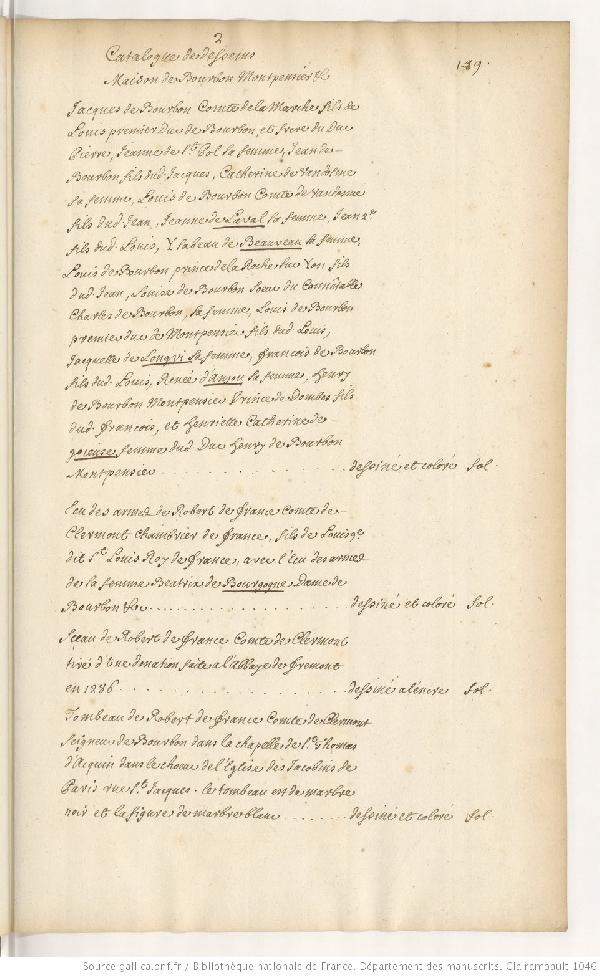 2
Catalogue de desseins
189.
Maison de Bourbon Montpensier &c
Jacques de Bourbon Comte de la Marche fils de
Louis premier Duc de Bourbon, et frere du Duc
Pierre, Jeanne de St Pol sa femme, Jean de
Bourbon fils dud. Jacques, Catherine de Vendosme
sa femme, Louis de Bourbon Comte de Vandosme
fils dud. Jean, Jeanne de Laval sa femme, Jean 2e
fils dud. Louis, Ysabeau de Beauveau sa femme,
Louis de Bourbon, prince de la Roche sur Yon fils
dud. Jean, Louise de Bourbon soeur du Connétable
Charles de Bourbon, sa femme, Louis de Bourbon
premier duc de Montpensier fils dud. Louis,
Jacquette de Longvi sa femme, François de Bourbon
fils dud. Louis, Renée d'Anjou sa femme, Henry
de Bourbon Montpensier Prince de Dombes fils
dud. François, et Henriette Catherine de
joieuse, femme dud. Duc Henry de Bourbon
Montpensier . . . . . . . . . . . . . dessiné et coloré fol.
Ecu des armes de Robert de France Comte de
Clermont Chambrier de France, fils de Louis 9e
dit St Louis Roy de France, avec l'Ecu des armes
de la femme Beatrix de Bourgogne Dame de
Bourbon &c . . . . . . . . . . . . . dessiné et coloré fol.
Sceau de Robert de France Comte de Clermont
tiré d'Une donation faite a l'abbaye de Fremont
en 1286 . . . . . . . . . . . . . dessiné a l'encre fol.
Tombeau de Robert de France Comte de Clermont
seigneur de Bourbon dans la chapelle de St Thomas
d'Acquin dans le choeur de l'Eglise des Jacobins de
Paris rue St Jacques. le tombeau est de marbre
noir et la figure de marbre blanc . . . . . . dessiné et coloré fol.
Source gallica.bnf.fr / Bibliothèque nationale de France. Département des manuscrits. Clairambault 1046